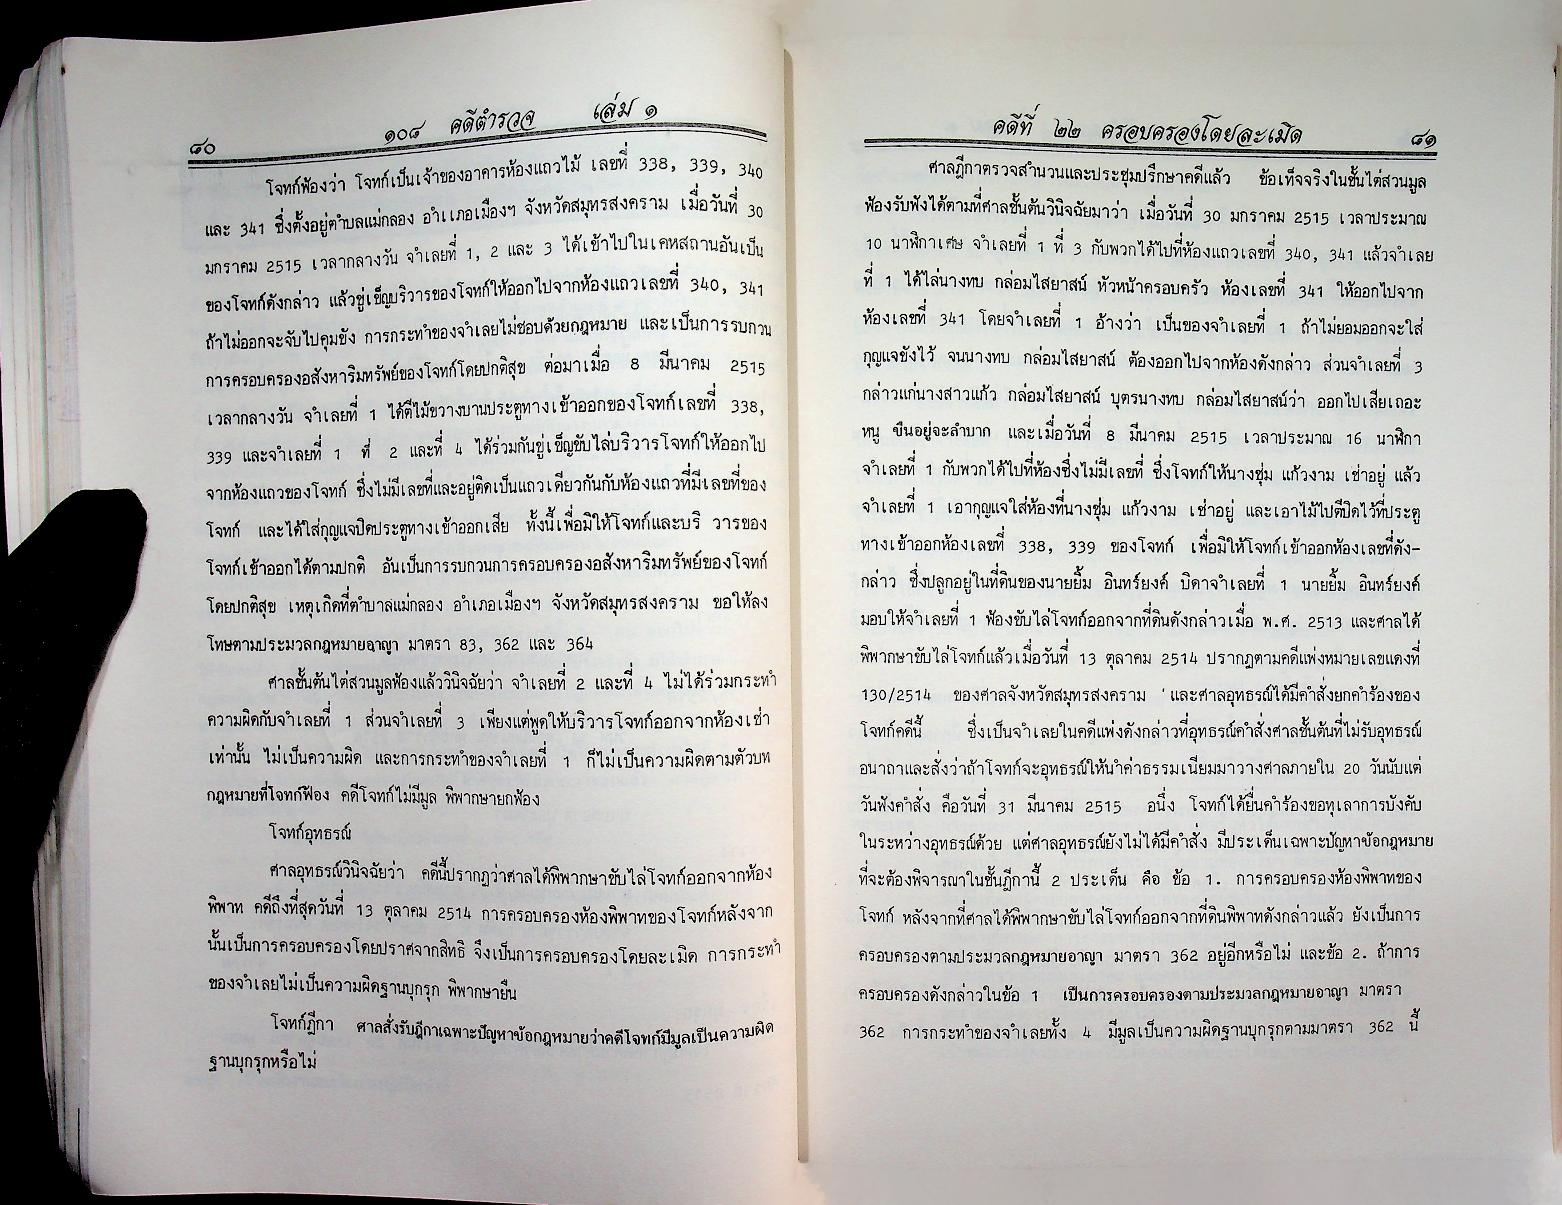 ๘๐ ๑๐๘ คดีตำรวจ เล่ม ๑
โจทก์ฟ้องว่า โจทก์เป็นเจ้าของอาคารห้องแถวไม้ เลขที่ 338, 339, 340
และ 341 ซึ่งตั้งอยู่ตำบลแม่กลอง อำเเภอเมืองฯ จังหวัดสมุทรสงคราม เมื่อวันที่ 30
มกราคม 2515 เวลากลางวัน จำเลยที่ 1, 2 และ 3 ได้เข้าไปในเคหสถานอันเป็น
ของโจทก์ดังกล่าว แล้วขู่เข็ญบริวารของโจทก์ให้ออกไปจากห้องแถวเลขที่ 340, 341
ถ้าไม่ออกจะจับไปคุมขัง การกระทำของจำเลยไม่ชอบด้วยกฎหมาย และเป็นการรบกวน
การครอบครองอสังหาริมทรัพย์ของโจทก์โดยปกติสุข ต่อมาเมื่อ 8 มีนาคม 2515
เวลากลางวัน จำเลยที่ 1 ได้ตีไม้ขวางบานประตูทางเข้าออกของโจทก์เลขที่ 338,
339 และจำเลยที่ 1 ที่ 2 และที่ 4 ได้ร่วมกันขู่เข็ญขับไล่บริวารโจทก์ให้ออกไป
จากห้องแถวของโจทก์ ซึ่งไม่มีเลขที่และอยู่ติดเป็นแถวเดียวกันกับห้องแถวที่มีเลขที่ของ
โจทก์ และได้ใส่กุญแจปิดประตูทางเข้าออกเสีย ทั้งนี้เพื่อมิให้โจทก์และบริ วารของ
โจทก์เข้าออกได้ตามปกติ อันเป็นการรบกวนการครอบครองอสังหาริมทรัพย์ของโจทก์
โดยปกติสุข เหตุเกิดที่ตำบาลแม่กลอง อำเภอเมืองฯ จังหวัดสมุทรสงคราม ขอให้ลง
โทษตามประมวลกฎหมายอาญา มาตรา 83, 362 และ 364
ศาลชั้นต้นไต่สวนมูลฟ้องแล้ววินิจฉัยว่า จำเลยที่ 2 และที่ 4 ไม่ได้ร่วมกระทำ
ความผิดกับจำเลยที่ 1 ส่วนจำเลยที่ 3 เพียงแต่พูดให้บริวารโจทก์ออกจากห้องเช่า
เท่านั้น ไม่เป็นความผิด และการกระทำของจำเลยที่ 1 ก็ไม่เป็นความผิดตามตัวบท
กฎหมายที่โจทก์ฟ้อง คดีโจทก์ไม่มีมูล พิพากษายกฟ้อง
โจทก์อุทธรณ์
ศาลอุทธรณ์วินิจฉัยว่า คดีนี้ปรากฏว่าศาลได้พิพากษาขับไล่โจทก์ออกจากห้อง
พิพาท คดีถึงที่สุดวันที่ 13 ตุลาคม 2514 การครอบครองห้องพิพาทของโจทก์หลังจาก
นั้นเป็นการครอบครองโดยปราศจากสิทธิ จึงเป็นการครอบครองโดยละเมิด การกระทำ
ของจำเลยไม่เป็นความผิดฐานบุกรุก พิพากษายืน
โจทก์ฎีกา ศาลสั่งรับฎีกาเฉพาะปัญหาข้อกฎหมายว่าคดีโจทก์มีมูลเป็นความผิด
ฐานบุกรุกหรือไม่
คดีที่ ๒๒ ครอบครองโดยละเมิด ๘๑
ศาลฎีกาตรวจสำนวนและประชุมปรึกษาคดีแล้ว ข้อเท็จจริงในชั้นไต่สวนมูล
ฟ้องรับฟังได้ตามที่ศาลชั้นต้นวินิจฉัยมาว่า เมื่อวันที่ 30 มกราคม 2515 เวลาประมาณ
10 นาฬิกาเศษ จำเลยที่ 1 ที่ 3 กับพวกได้ไปที่ห้องแถวเลขที่ 340, 341 แล้วจำเลย
ที่ 1 ได้ไล่นางทบ กล่อมไสยาสน์ หัวหน้าครอบครัว ห้องเลขที่ 341 ให้ออกไปจาก
ห้องเลขที่ 341 โดยจำเลยที่ 1 อ้างว่า เป็นของจำเลยที่ 1 ถ้าไม่ยอมออกจะใส่
กุญแจขังไว้ จนนางทบ กล่อมไสยาสน์ ต้องออกไปจากห้องดังกล่าว ส่วนจำเลยที่ 3
กล่าวแก่นางสาวแก้ว กล่อมไสยาสน์ บุตรนางทบ กล่อมไสยาสน์ว่า ออกไปเสียเถอะ
หนู ขืนอยู่จะลำบาก และเมื่อวันที่ 8 มีนาคม 2515 เวลาประมาณ 16 นาฬิกา
จำเลยที่ 1 กับพวกได้ไปที่ห้องซึ่งไม่มีเลขที่ ซึ่งโจทก์ให้นางชุ่ม แก้วงาม เช่าอยู่ แล้ว
จำเลยที่ 1 เอากุญแจใส่ห้องที่นางชุ่ม แก้วงาม เช่าอยู่ และเอาไม้ไปตีปิดไว้ที่ประตู
ทางเข้าออกห้องเลขที่ 338, 339 ของโจทก์ เพื่อมิให้โจทก์เข้าออกห้องเลขที่ดัง-
กล่าว ซึ่งปลูกอยู่ในที่ดินของนายยิ้ม อินทร์ยงค์ บิดาจำเลยที่ 1 นายยิ้ม อินทร์ยงค์
มอบให้จำเลยที่ 1 ฟ้องขับไล่โจทก์ออกจากที่ดินดังกล่าวเมื่อ พ.ศ. 2513 และศาลได้
พิพากษาขับไล่โจทก์แล้วเมื่อวันที่ 13 ตุลาคม 2514 ปรากฏตามคดีแพ่งหมายเลขแดงที่
130/2514 ของศาลจังหวัดสมุทรสงคราม และศาลอุทธรณ์ได้มีคำสั่งยกคำร้องของ
โจทก์คดีนี้ ซึ่งเป็นจำเลยในคดีแพ่งดังกล่าวที่อุทธรณ์คำสั่งศาลชั้นต้นที่ไม่รับอุทธรณ์
อนาถาและสั่งว่าถ้าโจทก์จะอุทธรณ์ให้นำค่าธรรมเนียมมาวางศาลภายใน 20 วันนับแต่
วันฟังคำสั่ง คือวันที่ 31 มีนาคม 2515 อนึ่ง โจทก์ได้ยื่นคำร้องขอทุเลาการบังคับ
ในระหว่างอุทธรณ์ด้วย แต่ศาลอุทธรณ์ยังไม่ได้มีคำสั่ง มีประเด็นเฉพาะปัญหาข้อกฎหมาย
ที่จะต้องพิจารณาในชั้นฎีกานี้ 2 ประเด็น คือ ข้อ 1. การครอบครองห้องพิพาทของ
โจทก์ หลังจากที่ศาลได้พิพากษาขับไล่โจทก์ออกจากที่ดินพิพาทดังกล่าวแล้ว ยังเป็นการ
ครอบครองตามประมวลกฎหมายอาญา มาตรา 362 อยู่อีกหรือไม่ และข้อ 2. ถ้าการ
ครอบครองดังกล่าวในข้อ 1 เป็นการครอบครองตามประมวลกฎหมายอาญา มาตรา
362 การกระทำของจำเลยทั้ง 4 มีมูลเป็นความผิดฐานบุกรุกตามมาตรา 362 นี้